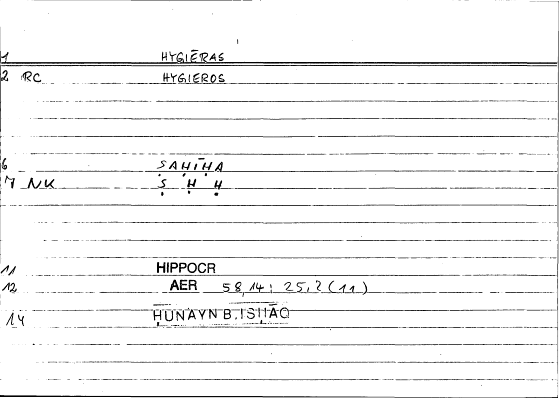 1 HYGIĒRAS
2 RC HYGIEROS
6 ṢAḤĪḤA
7 NK Ṣ Ḥ Ḥ
11 HIPPOCR
12 AER 58,14 : 25,2 (11)
14 ḤUNAYN B. ISḤĀQ